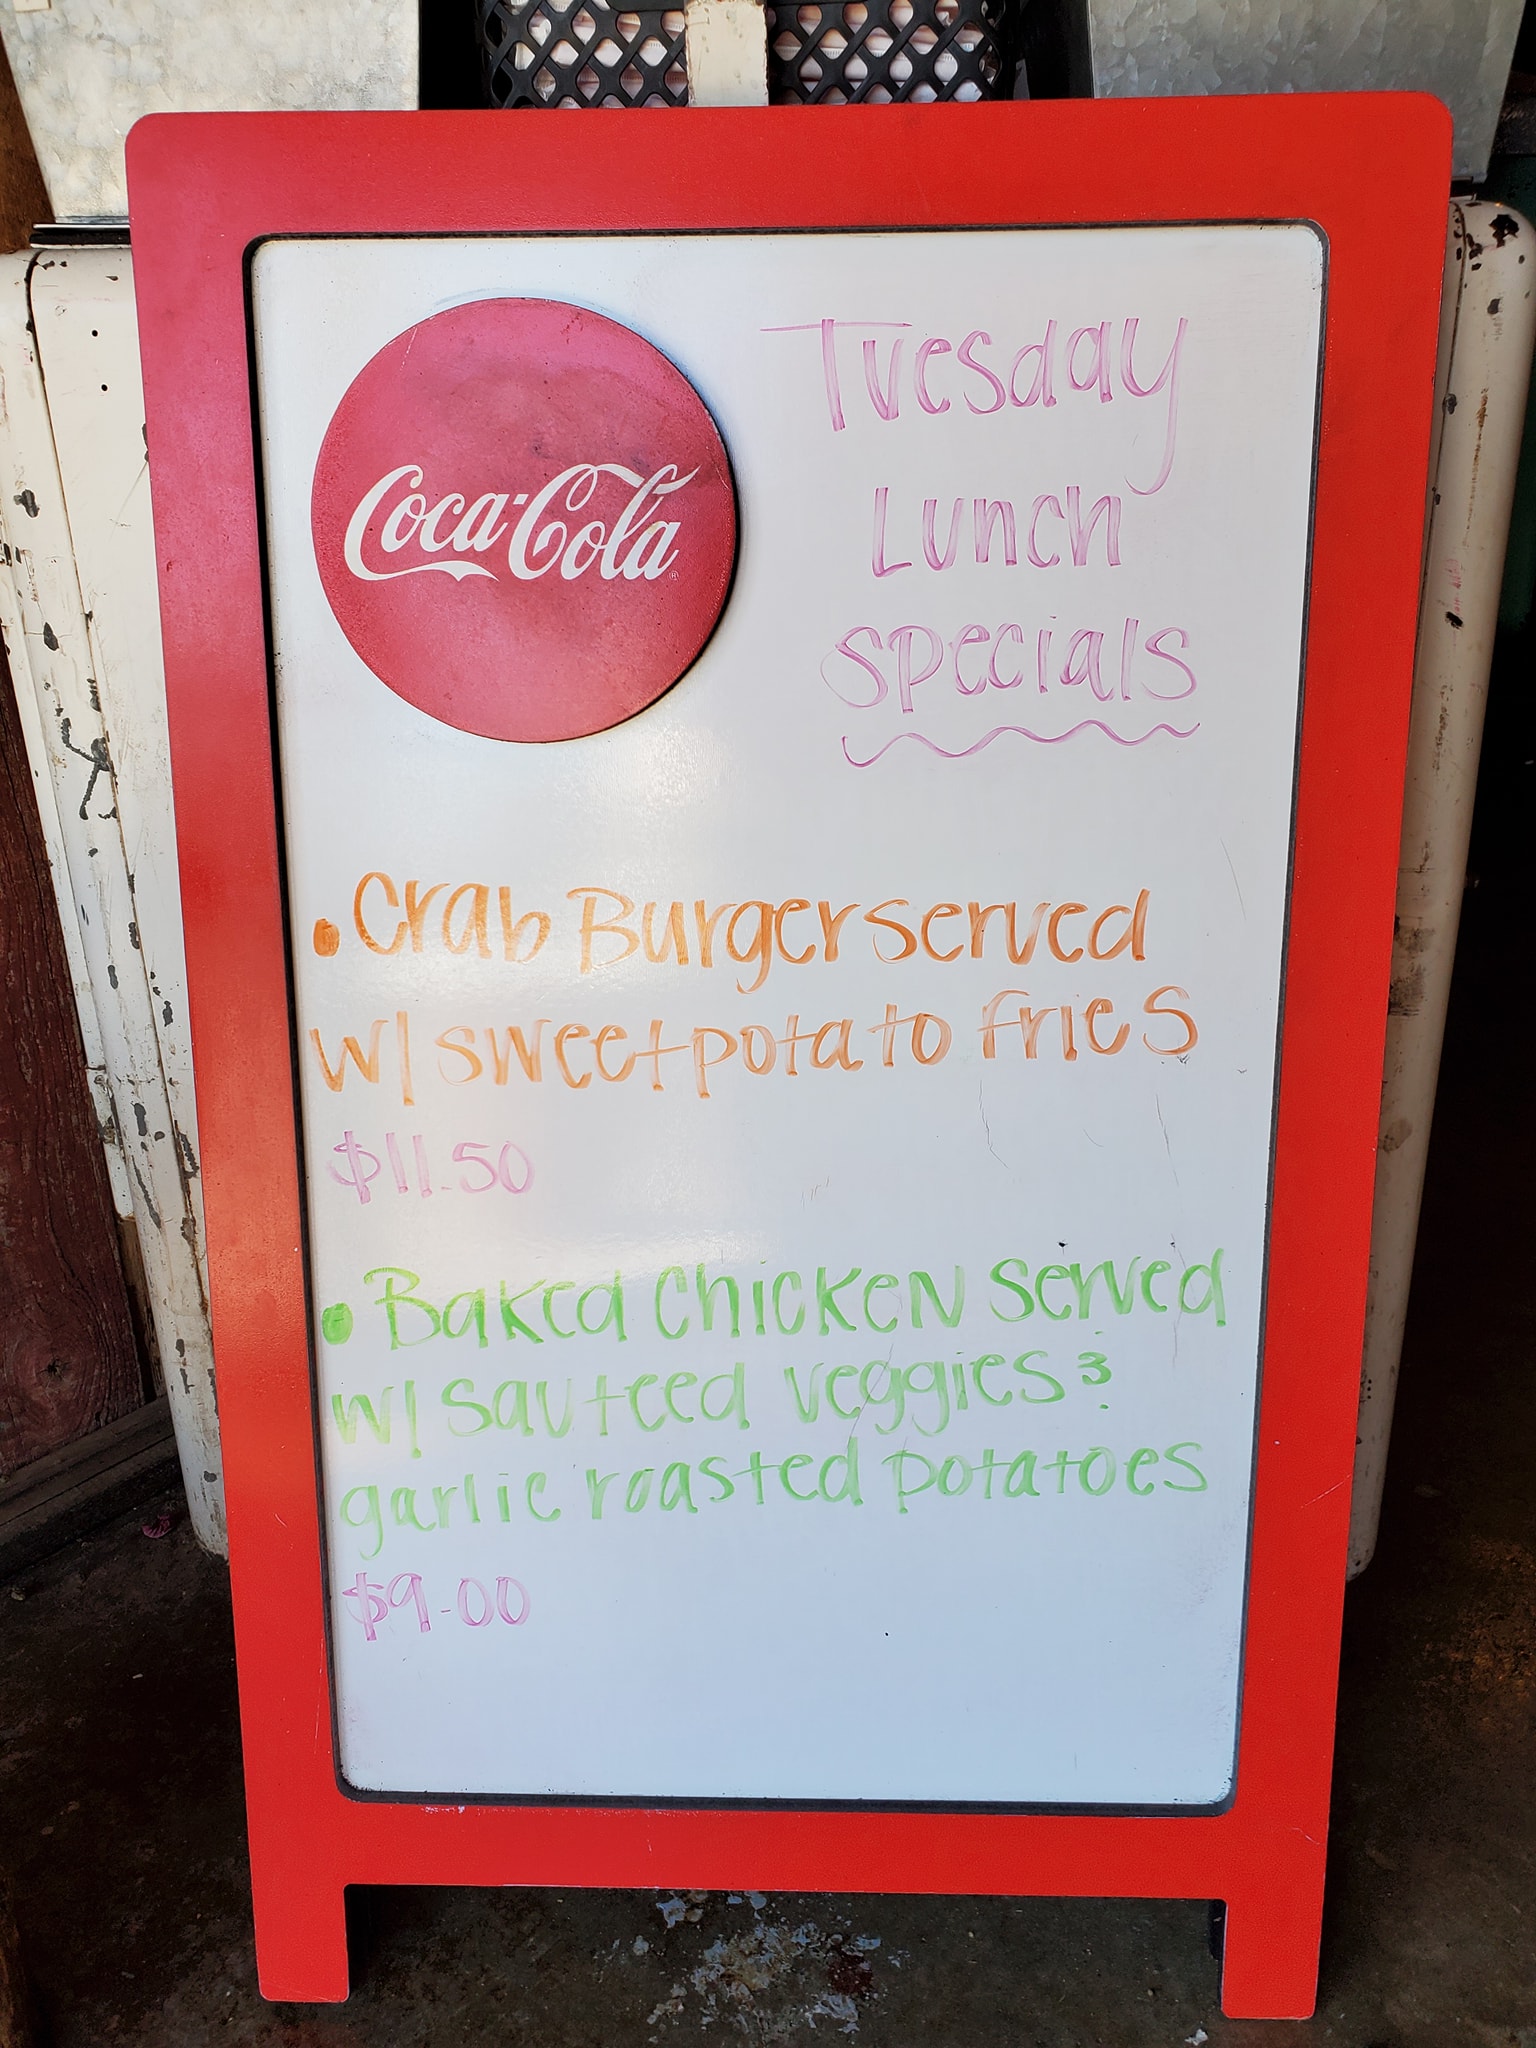 Coca-Cola
Tuesday
Lunch
Specials
• Crab Burger served
w/ sweet potato fries
$11.50
• Baked Chicken served
w/ sauteed veggies &
garlic roasted potatoes
$9.00